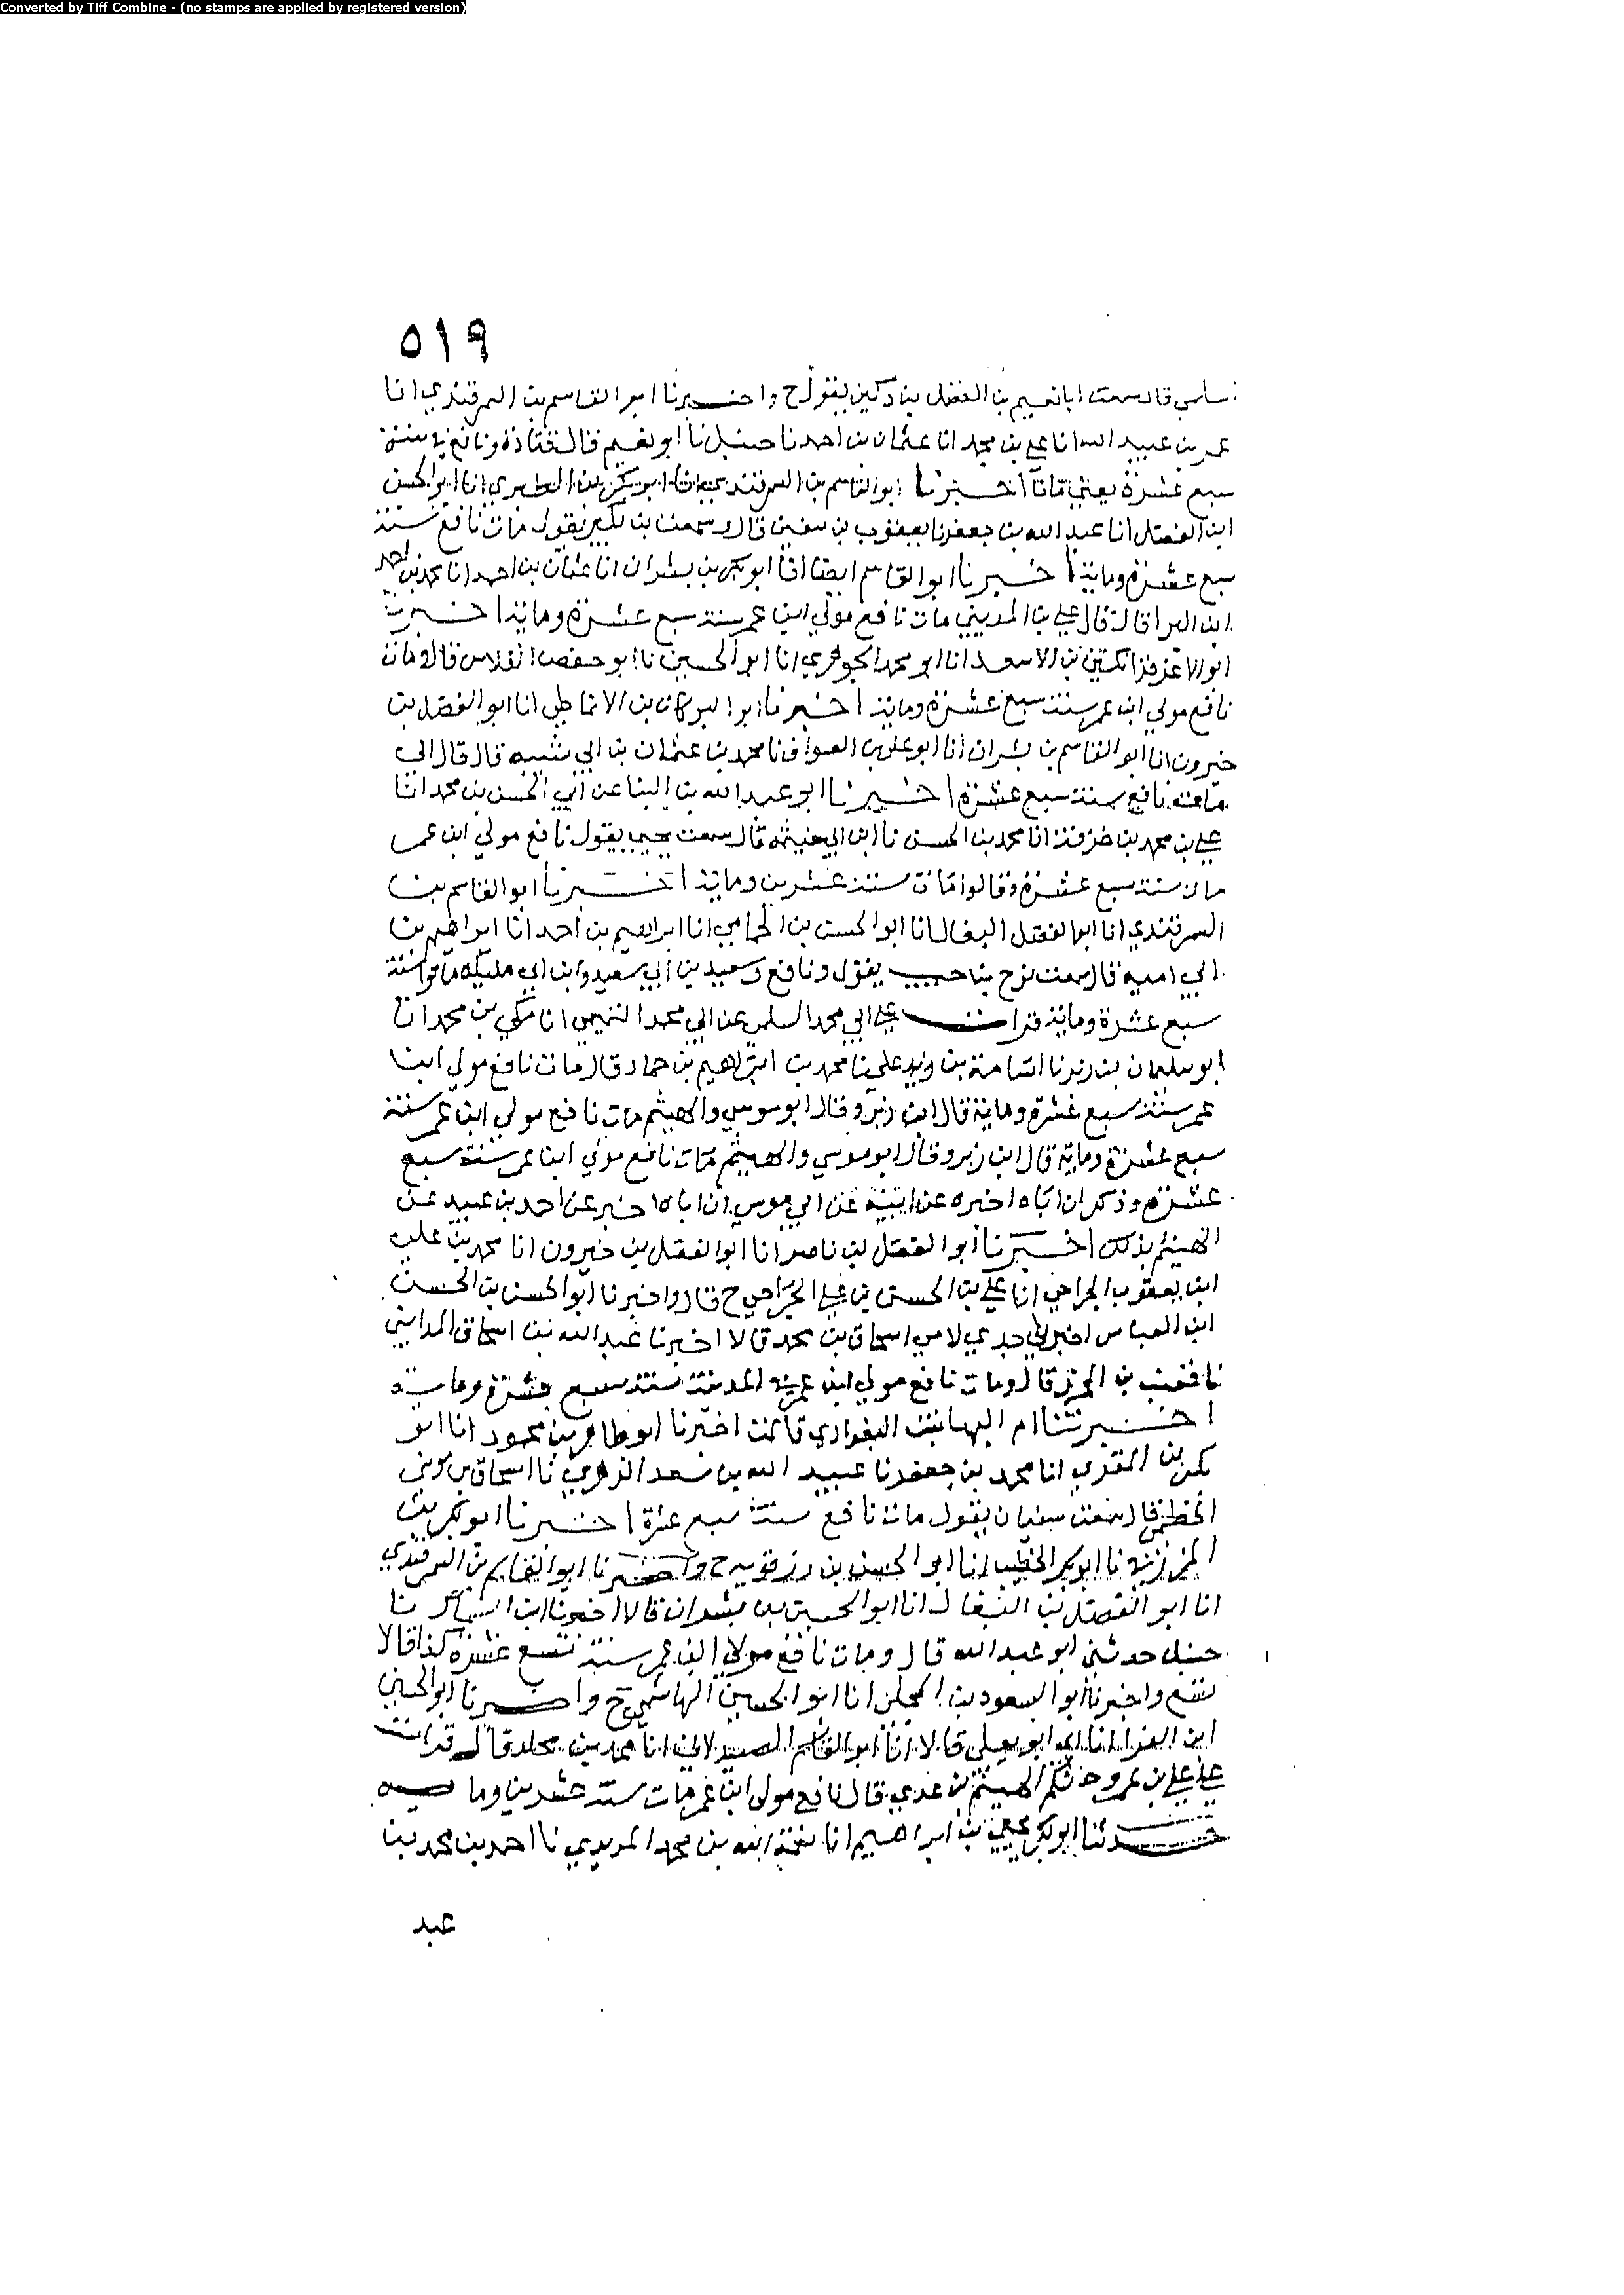 Converted by Tiff Combine - (no stamps are applied by registered version)
٥١٩
سلمى قال سمعت ابا نعيم بن الفضل بن دكين يقول ح واخبرنا ابو القاسم بن السمرقندي انا
عمر بن عبيد الله انا علي بن محمد انا عثمان بن احمد نا حنبل نا ابو نعيم قال قتادة ونافع في سنة
سبع عشرة يعني ماتا اخبرنا ابو القاسم بن السمرقندي انا ابو بكر بن الطبري انا ابو الحسن
ابن الفضل انا عبد الله بن جعفر نا يعقوب بن سفين قال وسمعت بن بكير يقول مات نافع سنة
سبع عشرة وماية اخبرنا ابو القاسم ايضا انا ابو بكر بن بشران انا عثمان بن احمد انا محمد بن احمد
ابن البرا قال قال علي بن المديني مات نافع مولي ابن عمر سنة سبع عشرة وماية اخبرنا
ابو الاعز قراتكين بن الاسعد انا ابو محمد الجوهري انا ابو الحسين نا ابو حفص الفلاس قال ومات
نافع مولي ابن عمر سنة سبع عشرة وماية اخبرنا ابو البركات بن الانماطي انا ابو الفضل بن
خيرون انا ابو القاسم بن بشران انا ابو علي بن الصواف نا محمد بن عثمان بن ابي شيبه قال قال ابي
مات نافع سنة سبع عشرة اخبرنا ابو عبد الله بن البنا عن ابي الحسن بن محمد انا
علي بن محمد بن خزفة انا محمد بن الحسن نا ابن ابي خيثمه قال سمعت يحيى يقول نافع مولي ابن عمر
مات سنة سبع عشرة وقالوا مات سنة عشرين وماية اخبرنا ابو القاسم بن
السمرقندي انا ابو الفضل البقال انا ابو الحسن بن الحمامي انا ابراهيم بن احمد انا ابراهيم بن
ابي اميه قال سمعت نوح بن حبيب يقول ونافع وسعيد بن ابي سعيد وابن ابي مليكه ماتوا سنة
سبع عشرة وماية قرات علي ابي محمد السلمي عن ابي محمد التميمي انا مكي بن محمد انا
ابو سليمان بن زبر نا اسامة بن زيد علي نا محمد بن ابراهيم بن حماد قال مات نافع مولي ابن
عمر سنة سبع عشرة وماية قال ابن زبر وقال ابو موسي والهيثم مات نافع مولي ابن عمر سنة
سبع عشرة وماية قال ابن زبر وقال ابو موسي والهيثم مات نافع مولي ابن عمر سنة سبع
عشرة وذكر ان اباه اخبره عن ابيه عن ابي موسي ان اباه اخبر عن احمد بن عبيد عن
الهيثم بذلك اخبرنا ابو الفضل بن ناصر انا ابو الفضل بن خيرون انا محمد بن علي
ابن يعقوب الجراحي انا علي بن الحسن بن علي الجراحي ح قال واخبرنا ابو الحسن بن الحسن
ابن العباس اخبرني جدي لامي اسحاق بن محمد قالا اخبرنا عبد الله بن اسحاق المدايني
نا قعنب بن المحرز قال ومات نافع مولي ابن عمر المدينة سنة سبع عشرة وماية
اخبرتنا ام البها بنت البغدادي قالت اخبرنا ابو طاهر بن محمود انا ابو
بكر بن المقري انا محمد بن جعفر نا عبيد الله بن سعد الزهري نا اسحاق بن موسى
الخطمي قال سمعت سفيان يقول مات نافع سنة سبع عشرة اخبرنا ابو بكر بن
المزرفي نا ابو بكر الخطيب انا ابو الحسن بن رزقويه ح واخبرنا ابو القاسم بن السمرقندي
انا ابو الفضل بن البقال انا ابو الحسين بن بشران قالا اخبرنا ابن السماك نا
حنبل حدثني ابو عبد الله قال ومات نافع مولي ابن عمر سنة تسع عشرة كذا قالا
تسع واخبرنا ابو السعود بن المجلي انا ابو الحسين الهاشمي ح واخبرنا ابو الحسين
ابن الفرا انا ابي ابو يعلى قالا انا ابو القاسم الصيدلاني انا محمد بن مخلد قال قرات
علي علي بن عمرو حدثكم الهيثم بن عدي قال نافع مولى ابن عمر مات سنة عشرين وماية
حدثنا ابو بكر يحيى بن ابراهيم انا نعمة الله بن محمد المريدي نا احمد بن محمد بن
عبد